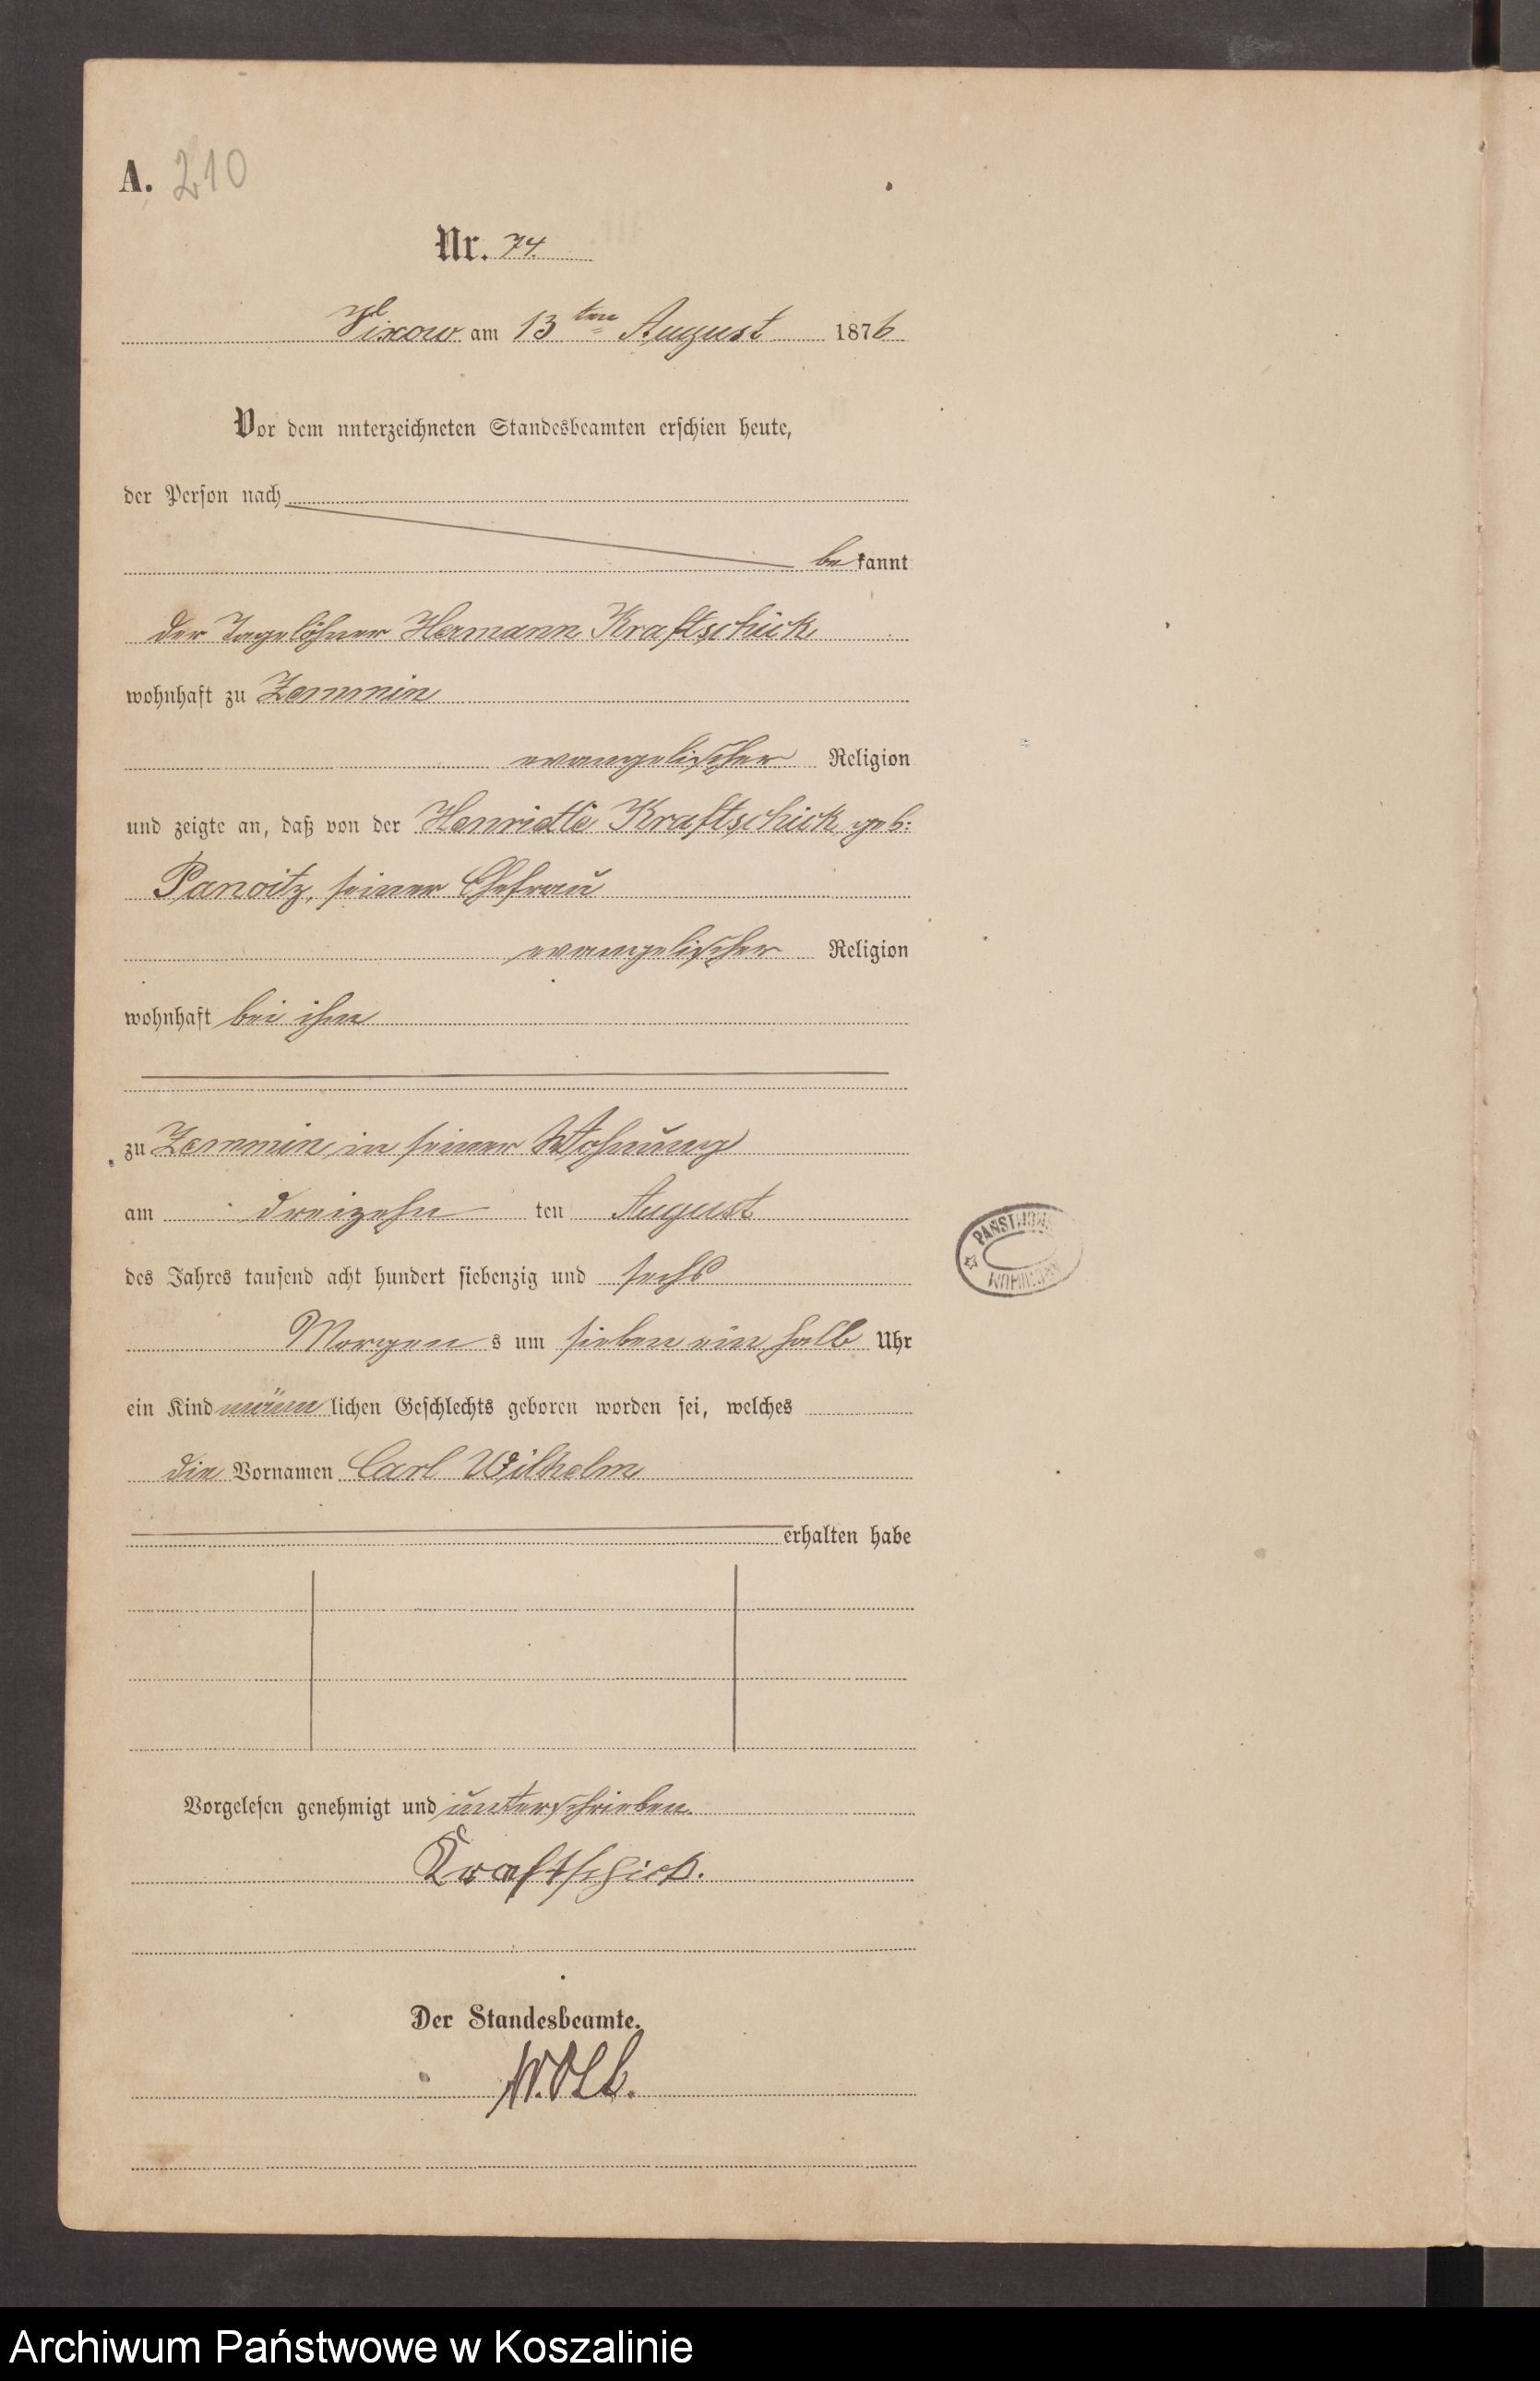 A. 210
Nr. 74.
Vixow am 13ten August 1876
Vor dem unterzeichneten Standesbeamten erschien heute,
der Person nach
bekannt
der Tagelöhner Hermann Kraftschick
wohnhaft zu Zemmin
evangelischer Religion
und zeigte an, daß von der Henriette Kraftschick geb:
seiner Ehefrau
evangelischer Religion
wohnhaft bei ihm
zu Zemmin in seiner Wohnung
am dreizehn ten August
des Jahres tausend acht hundert siebenzig und sechs
Morgens um sieben ein halb Uhr
ein Kind männlichen Geschlechts geboren worden sei, welches
die Vornamen Carl Wilhelm
erhalten habe
Vorgelesen genehmigt und unterschrieben.
Kraftschick.
Der Standesbeamte.
Archiwum Państwowe w Koszalinie